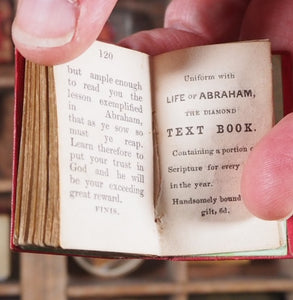 120
but ample enough
to read you the
lesson exemplified
in Abraham,
that as ye sow so
must ye reap.
Learn therefore to
put your trust in
God and he will
be your exceeding
great reward.
FINIS.
Uniform with
LIFE OF ABRAHAM,
THE DIAMOND
TEXT BOOK.
Containing a portion of
Scripture for every
in the year.
Handsomely bound
gift, 6d.